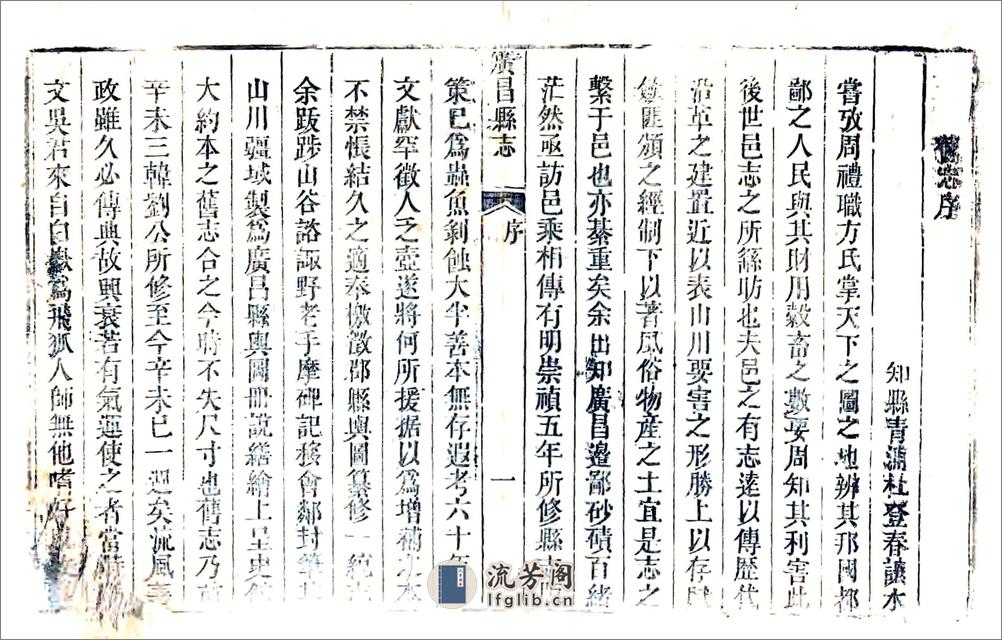 志序
知縣青浦杜登春讓水
嘗攷周禮職方氏掌天下之圖之地辨其邦國都
鄙之人民與其財用穀畜之數要周知其利害此
後世邑志之所繇昉也夫邑之有志遠以傳歷代
沿革之建置近以表山川要害之形勝上以存
匪頒之經制下以著風俗物產之土宜是志之
繫于邑也亦綦重矣余出知廣昌邊鄙砂磧百緒
茫然亟訪邑乘相傳有明崇禎五年所修縣志
廣昌縣志
序
一
策已為蟲魚剝蝕大半善本無存遐考六十年
文獻罕徵人乏壺遂將何所援据以為增補
不禁悵結久之適奉檄徵郡縣輿圖纂修一統
余跋跡山谷諮諏野老手摩碑記移會鄰封
山川疆域製為廣昌縣輿圖冊說繕繪上呈史
大約本之舊志合之今時不失尺寸也舊志乃
辛未三韓劉公所修至今辛未已一週矣流風
政雖久必傳典故興衰若有氣運使之者當
文吳君來自白為飛狐人師無他嗜好
流芳阁
lfglib.cn